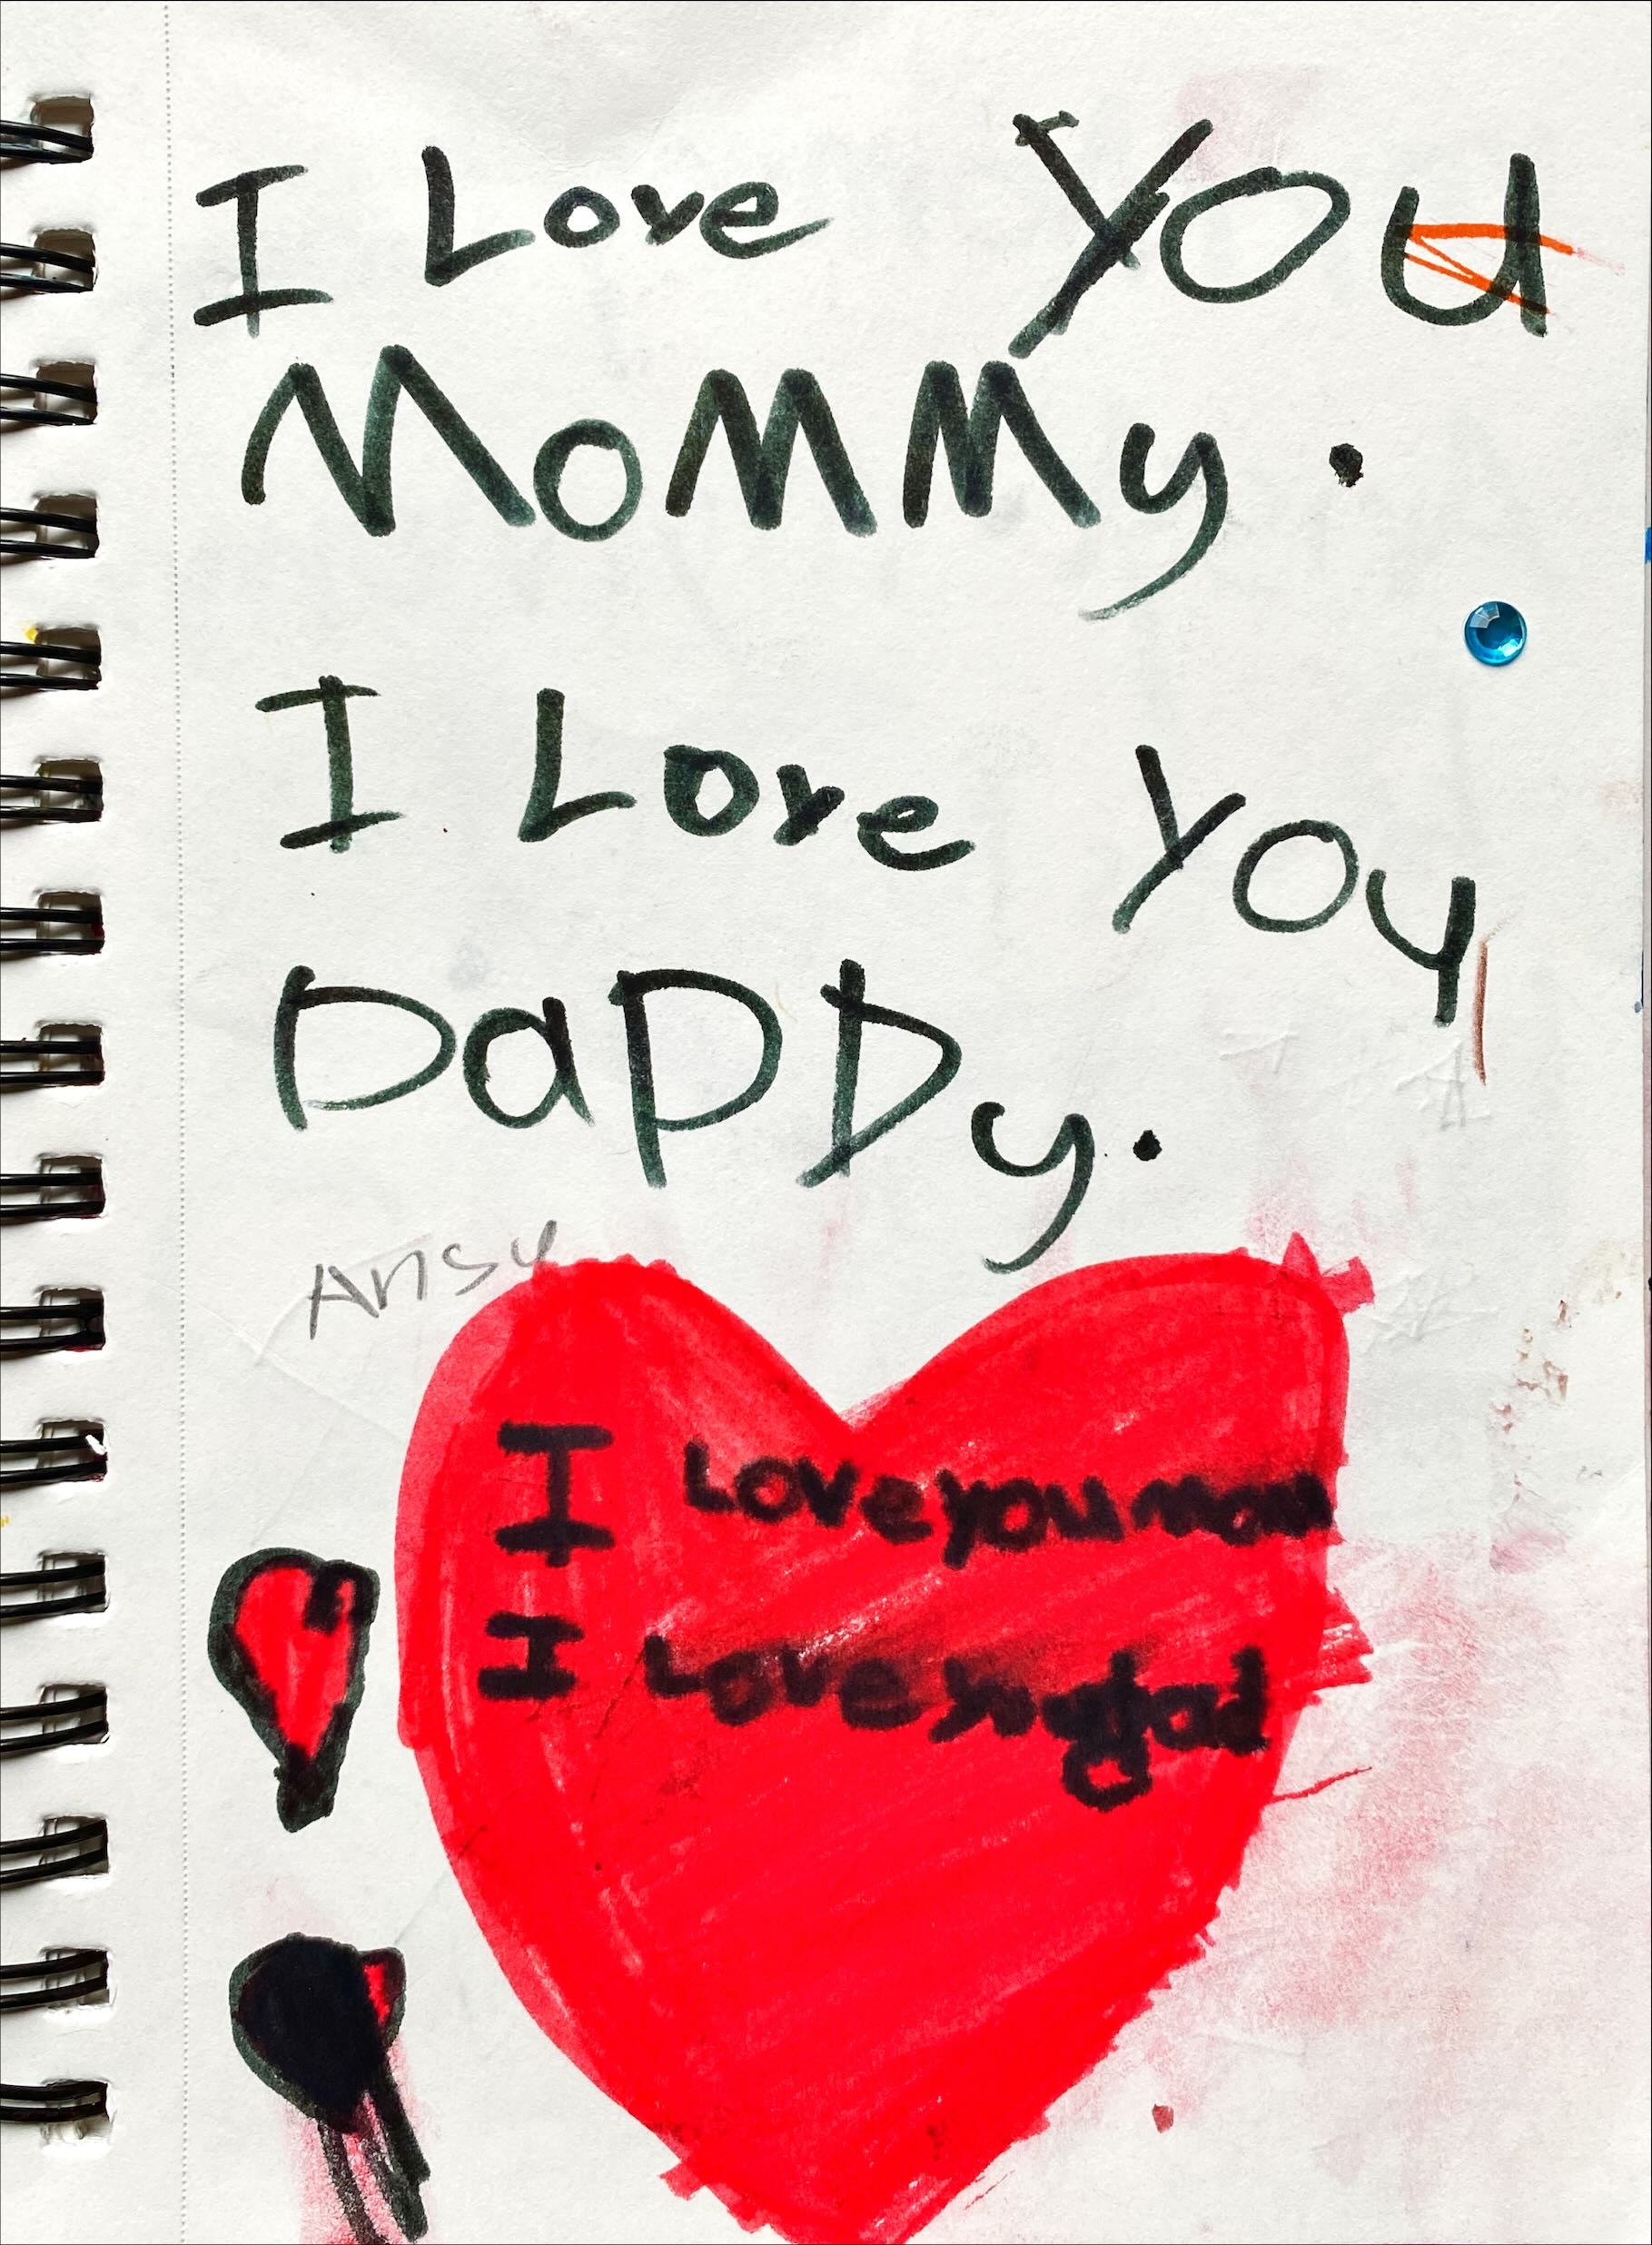 I Love You
MoMMy.
I Love You
DaDDy.
I Love you mom
I Love you dad